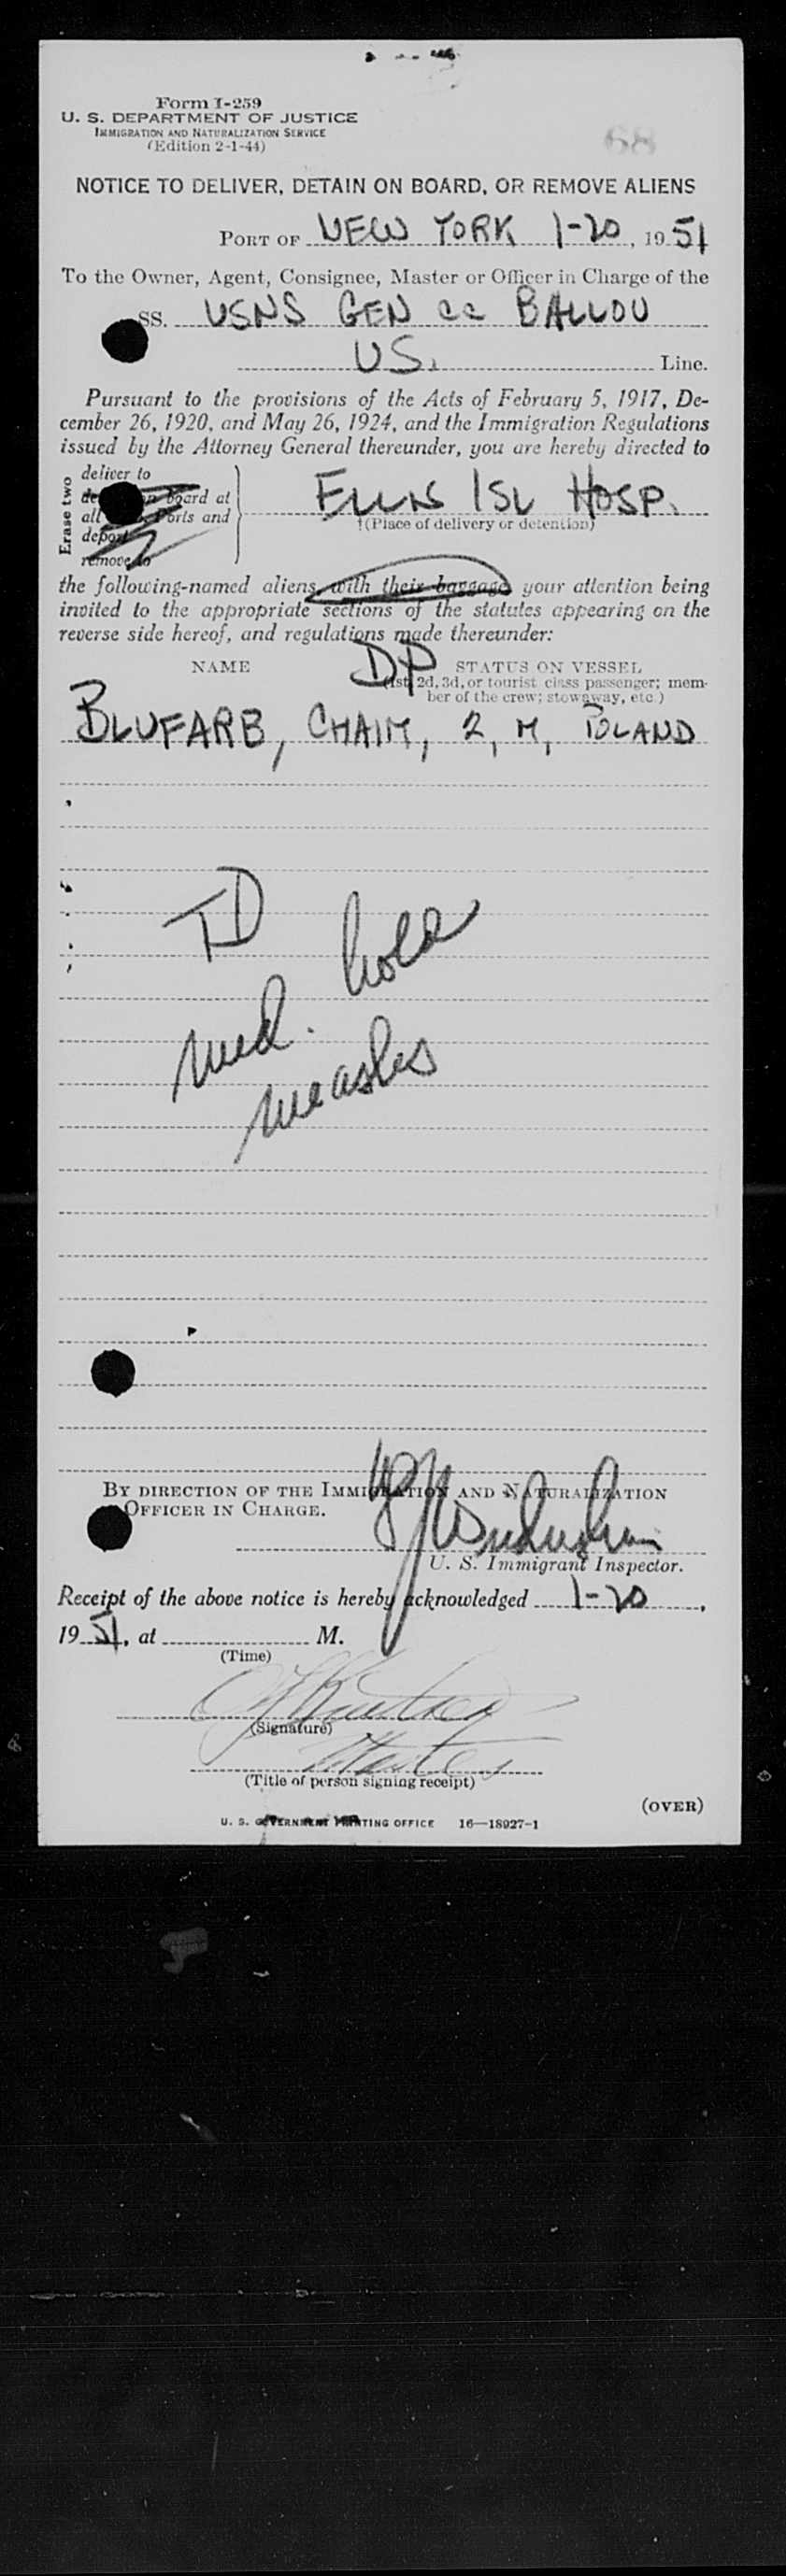 Form I-259
U. S. DEPARTMENT OF JUSTICE
IMMIGRATION AND NATURALIZATION SERVICE
(Edition 2-1-44)
68
NOTICE TO DELIVER, DETAIN ON BOARD, OR REMOVE ALIENS
PORT OF NEW YORK 1-20, 1951
To the Owner, Agent, Consignee, Master or Officer in Charge of the
SS. USNS GEN CC BALLOU
US. Line.
Pursuant to the provisions of the Acts of February 5, 1917, De-
cember 26, 1920, and May 26, 1924, and the Immigration Regulations
issued by the Attorney General thereunder, you are hereby directed to
Erase two
deliver to
board at
all ports and
remove to
ELLIS ISL HOSP.
†(Place of delivery or detention)
the following-named aliens, with their baggage, your attention being
invited to the appropriate sections of the statutes appearing on the
reverse side hereof, and regulations made thereunder:
NAME DP STATUS ON VESSEL
(1st, 2d, 3d, or tourist class passenger; mem-
ber of the crew; stowaway, etc.)
BLUFARB, CHAIM, 2, M, POLAND
TD
med. hold
measles
BY DIRECTION OF THE IMMIGRATION AND NATURALIZATION
OFFICER IN CHARGE.
U. S. Immigrant Inspector.
Receipt of the above notice is hereby acknowledged 1-20,
19 51, at M.
(Time)
(Signature)
(Title of person signing receipt)
(OVER)
U. S. GOVERNMENT PRINTING OFFICE 16—18927-1